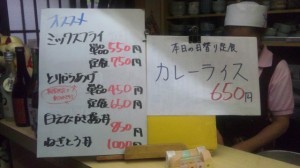 オススメ
ミックスフライ
単品 550円
定食 750円
とりからあげ
単品 450円
定食 650円
850円
ねぎとろ丼
1000円
本日の日替り定食
カレーライス
650円